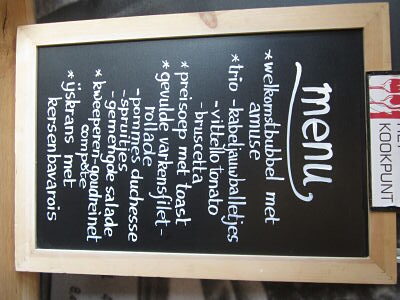 menu
*welkomstbubbel met
amuse
*trio -kabeljauwballetjes
-vittello tonato
-bruscetta
*preisoep met toast
*gevulde varkensfilet-
rollade
-pommes duchesse
-spruitjes
-gemengde salade
*kweeperen-goudreinet
compote
*ijskrans met
kersenbavarois
KOOKPUNT